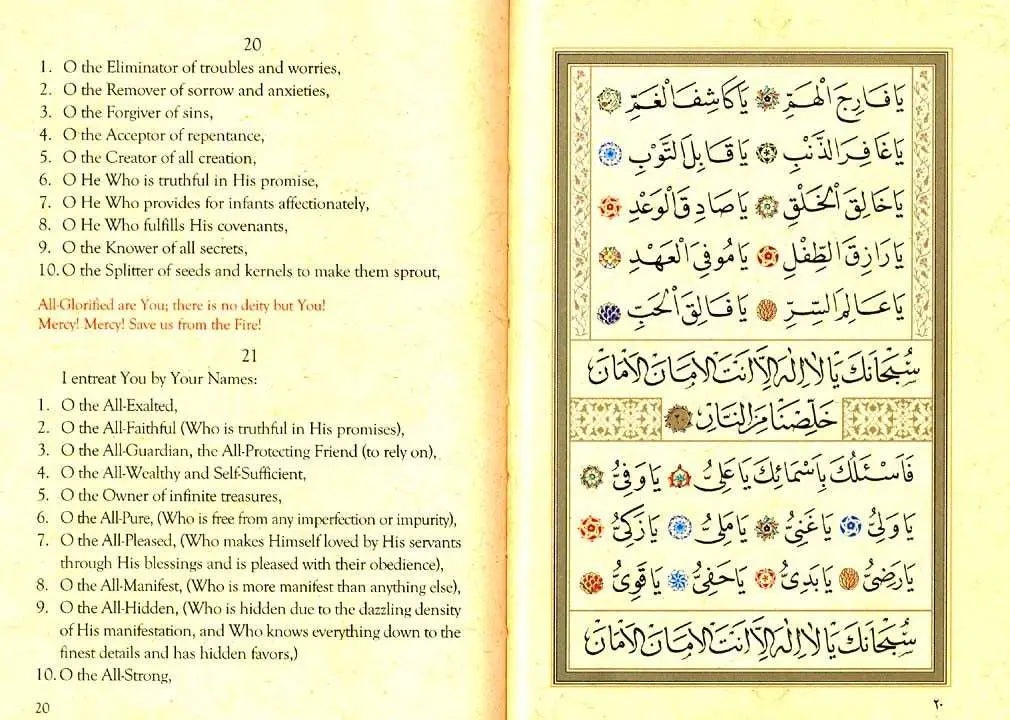 20
1. O the Eliminator of troubles and worries,
2. O the Remover of sorrow and anxieties,
3. O the Forgiver of sins,
4. O the Acceptor of repentance,
5. O the Creator of all creation,
6. O He Who is truthful in His promise,
7. O He Who provides for infants affectionately,
8. O He Who fulfills His covenants,
9. O the Knower of all secrets,
10. O the Splitter of seeds and kernels to make them sprout,
All-Glorified are You; there is no deity but You!
Mercy! Mercy! Save us from the Fire!
21
I entreat You by Your Names:
1. O the All-Exalted,
2. O the All-Faithful (Who is truthful in His promises),
3. O the All-Guardian, the All-Protecting Friend (to rely on),
4. O the All-Wealthy and Self-Sufficient,
5. O the Owner of infinite treasures,
6. O the All-Pure, (Who is free from any imperfection or impurity),
7. O the All-Pleased, (Who makes Himself loved by His servants
through His blessings and is pleased with their obedience),
8. O the All-Manifest, (Who is more manifest than anything else),
9. O the All-Hidden, (Who is hidden due to the dazzling density
of His manifestation, and Who knows everything down to the
finest details and has hidden favors,)
10. O the All-Strong,
20
يَا فَارِجَ الْهَمِّ يَا كَاشِفَ الْغَمِّ
يَا غَافِرَ الذَّنْبِ يَا قَابِلَ التَّوْبِ
يَا خَالِقَ الْخَلْقِ يَا صَادِقَ الْوَعْدِ
يَا رَازِقَ الطِّفْلِ يَا مُوفِىَ الْعَهْدِ
يَا عَالِمَ السِّرِّ يَا فَالِقَ الْحَبِّ
سُبْحَانَكَ يَا لَا اِلٰهَ اِلَّا اَنْتَ الْاَمَانَ الْاَمَانَ
خَلِّصْنَا مِنَ النَّارِ
فَاَسْئَلُكَ بِاَسْمَائِكَ يَا عَلِىُّ يَا وَفِىُّ
يَا وَلِىُّ يَا غَنِىُّ يَا مَلِىُّ يَا زَكِىُّ
يَا رَضِىُّ يَا بَدِىُّ يَا خَفِىُّ يَا قَوِىُّ
سُبْحَانَكَ يَا لَا اِلٰهَ اِلَّا اَنْتَ الْاَمَانَ الْاَمَانَ
٢٠